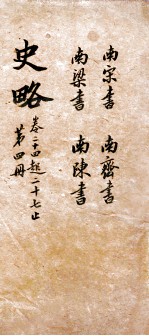 南宋書　南齊書
南梁書　南陳書
史略
卷二十四起二十七止
第四冊